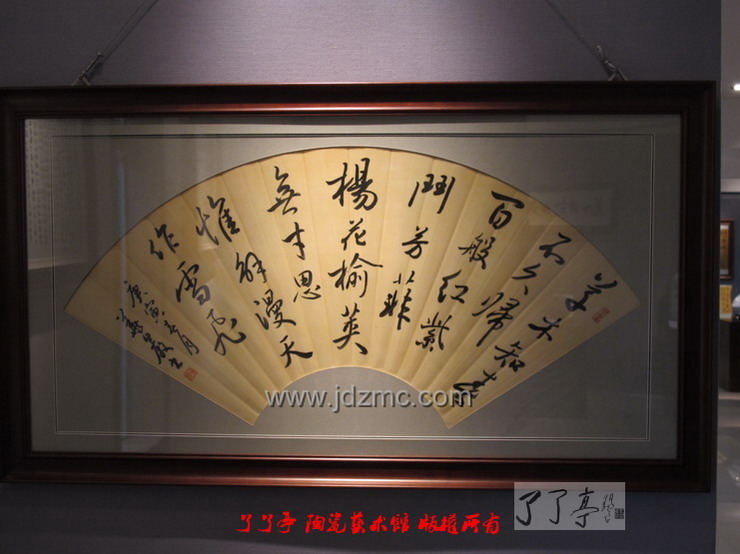 草木知春
不久歸
百般紅紫
鬥芳菲
楊花榆莢
無才思
惟解漫天
作雪飛
庚寅春月
www.jdzmc.com
了了亭 陶瓷艺术馆 版权所有
了了亭